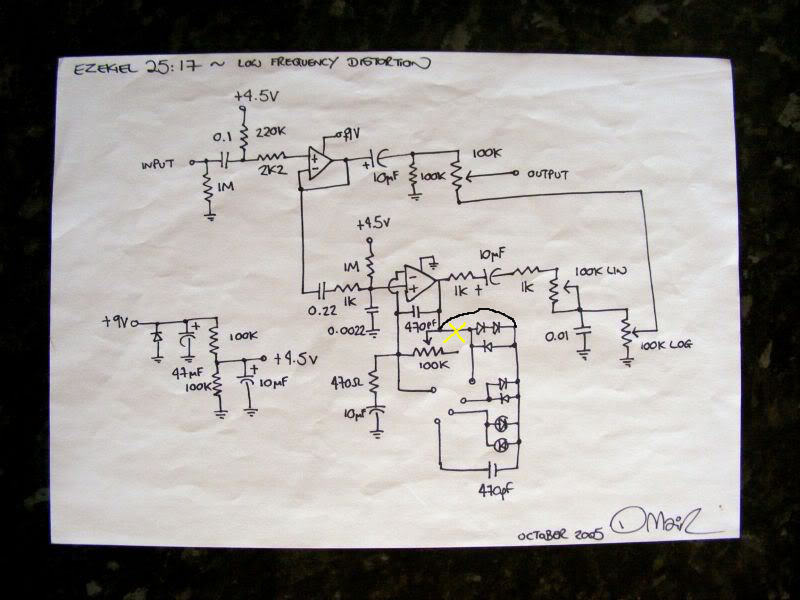 EZEKIEL 25:17 ~ LOW FREQUENCY DISTORTION
+4.5V
0.1
220K
+9V
INPUT
2K2
+
-
+
10µF
100K
100K
OUTPUT
1M
+4.5V
1M
10µF
-
+
1K
+
1K
100K LIN
0.22
1K
0.0022
470pF
0.01
100K LOG
+9V
+
100K
+4.5V
47µF
100K
+
10µF
100K
470Ω
10µF
+
470pF
OCTOBER 2005